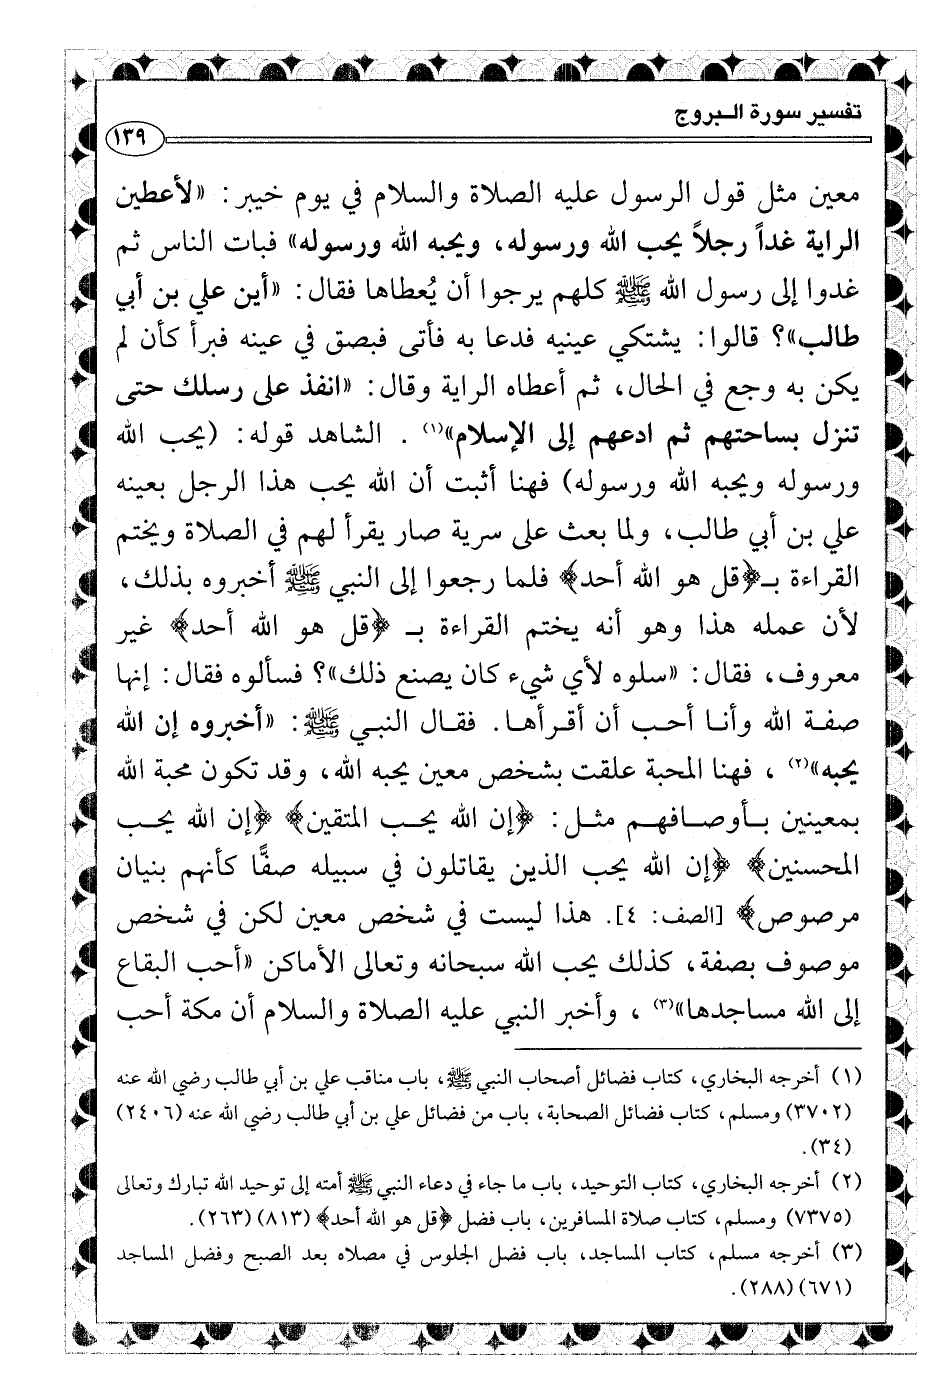 تفسير سورة الـبروج
١٣٩
معين مثل قول الرسول عليه الصلاة والسلام في يوم خيبر: «لأعطين
الراية غداً رجلاً يحب الله ورسوله، ويحبه الله ورسوله» فبات الناس ثم
غدوا إلى رسول الله ﷺ كلهم يرجوا أن يُعطاها فقال: «أين علي بن أبي
طالب»؟ قالوا: يشتكي عينيه فدعا به فأتى فبصق في عينه فبرأ كأن لم
يكن به وجع في الحال، ثم أعطاه الراية وقال: «انفذ على رسلك حتى
تنزل بساحتهم ثم ادعهم إلى الإسلام»(١) . الشاهد قوله: (يحب الله
ورسوله ويحبه الله ورسوله) فهنا أثبت أن الله يحب هذا الرجل بعينه
علي بن أبي طالب، ولما بعث على سرية صار يقرأ لهم في الصلاة ويختم
القراءة بـ﴿قل هو الله أحد﴾ فلما رجعوا إلى النبي ﷺ أخبروه بذلك،
لأن عمله هذا وهو أنه يختم القراءة بـ ﴿قل هو الله أحد﴾ غير
معروف، فقال: «سلوه لأي شيء كان يصنع ذلك»؟ فسألوه فقال: إنها
صفـة الله وأنـا أحـب أن أقـرأهـا. فقـال النبـي ﷺ: «أخبروه إن الله
يحبه»(٢) ، فهنا المحبة علقت بشخص معين يحبه الله، وقد تكون محبة الله
بمعينين بـأوصـافهـم مثـل: ﴿إن الله يحـب المتقين﴾ ﴿إن الله يحـب
المحسنين﴾ ﴿إن الله يحب الذين يقاتلون في سبيله صفًّا كأنهم بنيان
مرصوص﴾ [الصف: ٤]. هذا ليست في شخص معين لكن في شخص
موصوف بصفة، كذلك يحب الله سبحانه وتعالى الأماكن «أحب البقاع
إلى الله مساجدها»(٣) ، وأخبر النبي عليه الصلاة والسلام أن مكة أحب
(١) أخرجه البخاري، كتاب فضائل أصحاب النبي ﷺ، باب مناقب علي بن أبي طالب رضي الله عنه
(٣٧٠٢) ومسلم، كتاب فضائل الصحابة، باب من فضائل علي بن أبي طالب رضي الله عنه (٢٤٠٦)
(٣٤).
(٢) أخرجه البخاري، كتاب التوحيد، باب ما جاء في دعاء النبي ﷺ أمته إلى توحيد الله تبارك وتعالى
(٧٣٧٥) ومسلم، كتاب صلاة المسافرين، باب فضل ﴿قل هو الله أحد﴾ (٨١٣) (٢٦٣).
(٣) أخرجه مسلم، كتاب المساجد، باب فضل الجلوس في مصلاه بعد الصبح وفضل المساجد
(٦٧١) (٢٨٨).